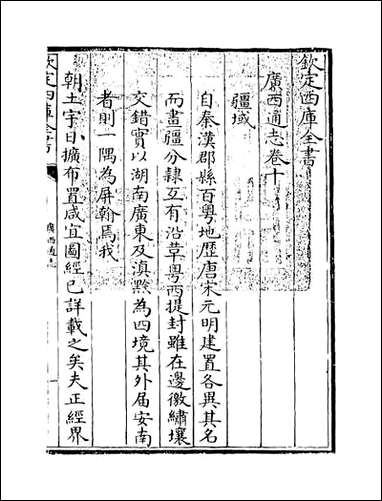 欽定四庫全書
廣西通志卷十
疆域
自秦漢郡縣百粤地歴唐宋元明建置各異其名
而畫疆分隷互有沿革粤西提封雖在邊徼繡壤
交錯實以湖南廣東及滇黔為四境其外届安南
者則一隅為屏翰焉我
朝土宇日擴布置咸宜圖經已詳載之矣夫正經界
欽定四庫全書
廣西通志